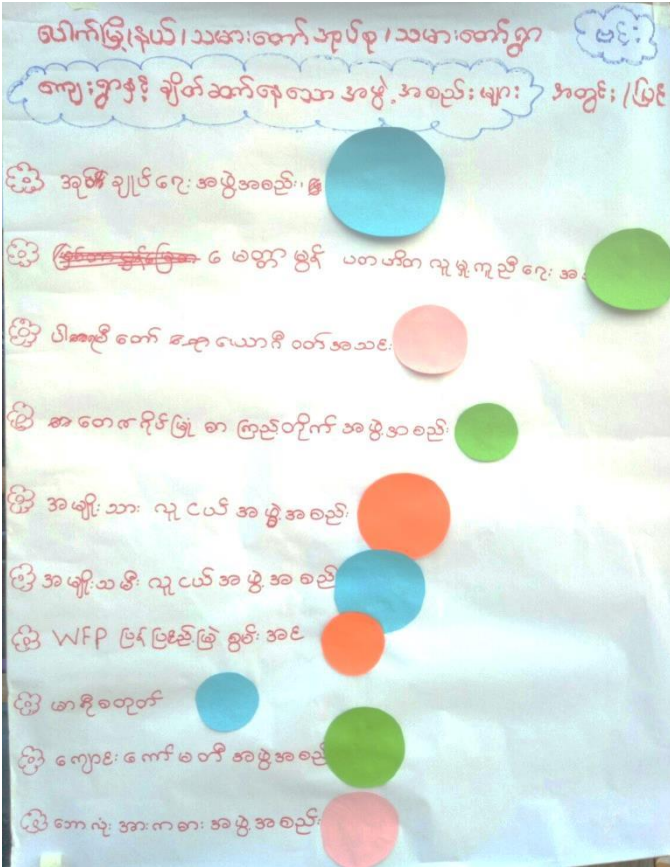 ပေါက်မြို့နယ်၊သမားတော်အုပ်စု၊သမားတော်ရွာ
ဗင်း
ကျေးရွာနှင့် ချိတ်ဆက်နေသော အဖွဲ့အစည်းများ
အတွင်း/ပြင်
အုပ်ချုပ်ရေးအဖွဲ့အစည်း
မေတ္တာမွန် ပတဟိတ လူမှုကူညီရေး အ
ဝတ်အသင်း
ကြည့်တိုက် အဖွဲ့အစည်း
အမျိုးသား လူငယ် အဖွဲ့အစည်း
အမျိုးသမီး လူငယ် အဖွဲ့အစည်
WFP ပြန်ပြည့်မြဲ စွမ်းအင်
မာစီစတုတ်
ကျောင်းကော်မတီ အဖွဲ့အစည်
ဘောလုံး အားကစား အဖွဲ့အစည်း